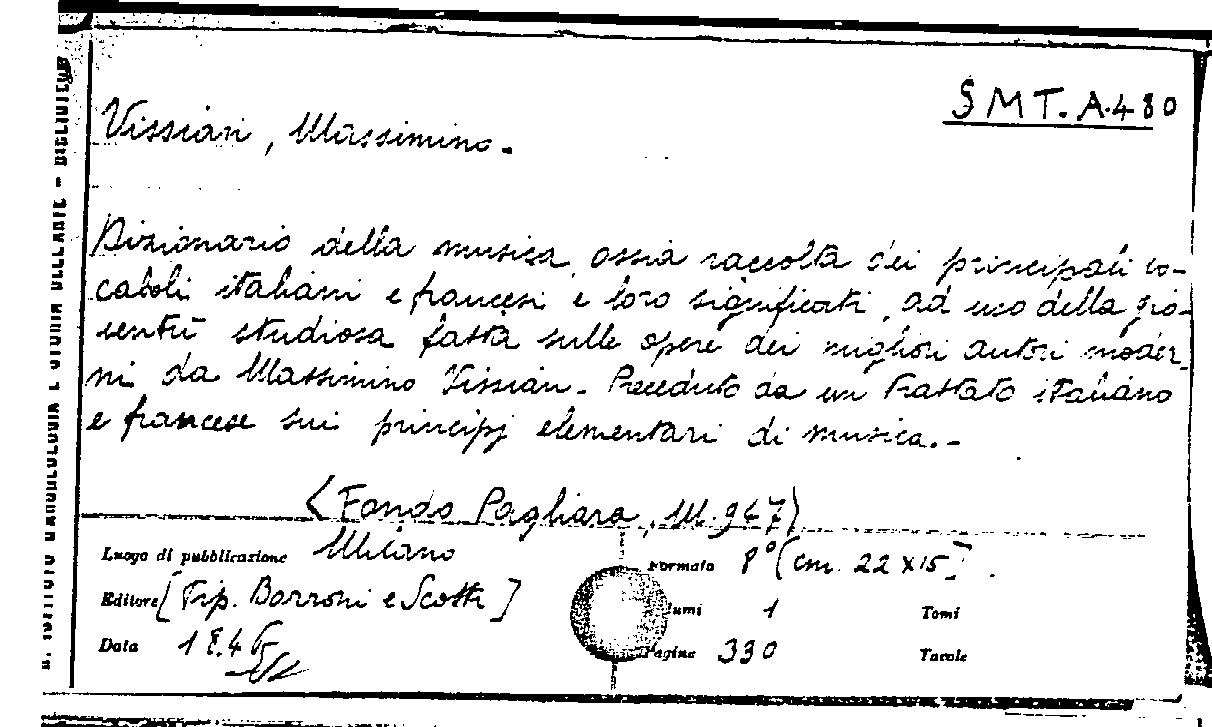 SMT. A.480
Vissian, Massimino.-
Dizionario della musica, ossia raccolta dei principali vo-
caboli italiani e francesi e loro significati, ad uso della gio-
ventù studiosa fatta sulle opere dei migliori autori moder-
ni da Massimino Vissian. Preceduto da un trattato italiano
e francese sui principj elementari di musica.-
(Fondo Pagliara, M. 947)
Luogo di pubblicazione Milano
Formato 8° (cm. 22 x 15].
Editore [Tip. Barroni e Scotti]
umi 1 Tomi
Data 1846
Pagine 330 Tavole